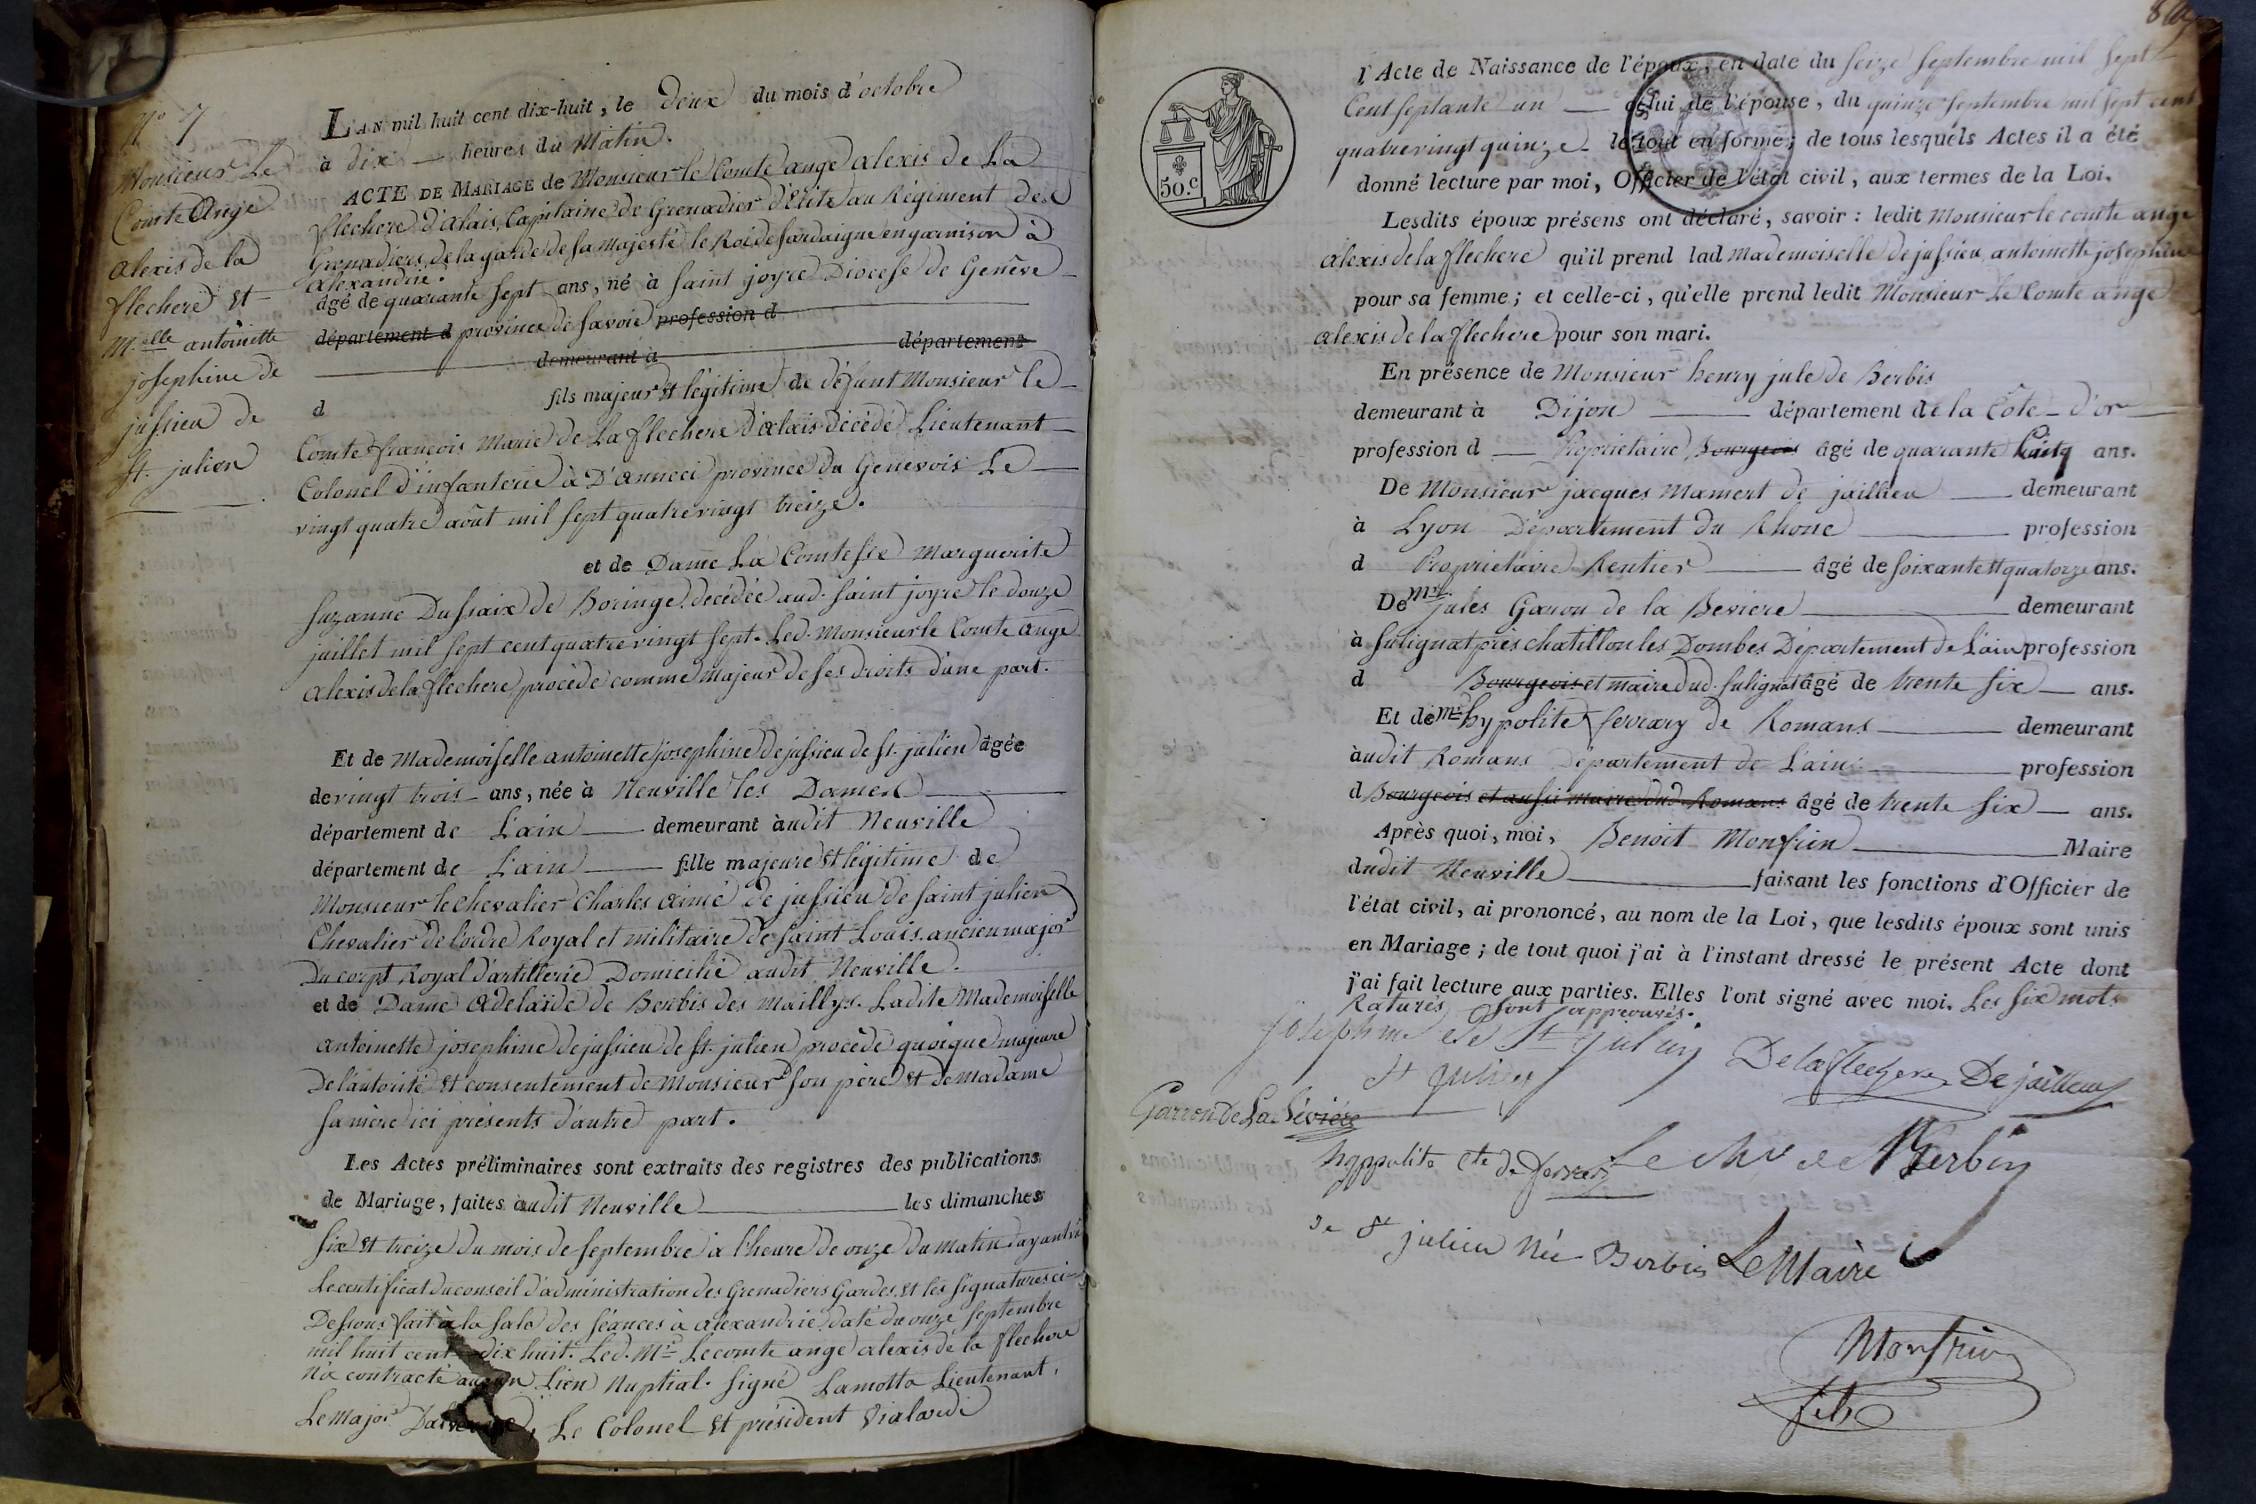 N° 7
Monsieur Le
Comte Ange
Alexis de la
flechere et
M.elle antoinette
josephine de
jussieu de
St. julien
L'AN mil huit cent dix-huit, le deux du mois d'octobre
à dix heures du Matin.
ACTE DE MARIAGE de Monsieur le Comte ange alexis de La
flechere d'Alais, Capitaine de Grenadier d'Elite au Régiment des
Grenadiers de la garde de sa Majesté le Roi de sardaigne en garnison à
alexandrie.
âgé de quarante sept ans, né à Saint joyre Diocese de Genêve
département d province de savoie profession d
demeurant à département
d fils majeur et légitime de défunt Monsieur le
Comte françois Marie de La flechere d'alais décédé Lieutenant
Colonel d'infanterie à D'anneci province du Genevois Le
vingt quatre août mil sept quatre vingt treize.
et de Dame La Comtesse Marguerite
Suzanne Dufraix de Boringe, décédée aud. Saint joyre le douze
juillet mil sept cent quatre vingt sept. Led. Monsieur le Comte ange
alexis de la flechere procède comme Majeur de ses droits d'une part.
Et de Mademoiselle antoinette josephine de jussieu de st. julien âgée
de vingt trois ans, née à Neuville les Dames
département de L'ain demeurant audit Neuville
département de L'ain fille majeure et légitime de
Monsieur le Chevalier Charles aimé de jussieu de saint julien
Chevalier de l'ordre Royal et militaire de saint Louis, ancien major
Du corps Royal d'artillerie Domicilié audit Neuville.
et de Dame adelaïde de Berbis des Maillys. Ladite Mademoiselle
antoinette josephine de jussieu de St. julien procède quoique majeure
De l'autorité et consentement de Monsieur son père et de Madame
sa mère ici présents d'autre part.
Les Actes préliminaires sont extraits des registres des publications
de Mariage, faites audit Neuville les dimanches
six et treize du mois de septembre à l'heure de onze du matin,
Le certificat du conseil d'administration des Grenadiers Gardes, et les signatures ci-
Dessous fait à la sale des séances à alexandrie, daté du onze septembre
mil huit cent dix huit. Led. Mr. Le comte ange alexis de la flechere
N'a contracté aucun Lien Nuptial. Signé Lamotta Lieutenant,
Le Major Le Colonel et président Vialardi
l'Acte de Naissance de l'époux, en date du seize septembre mil sept
Cent septante un celui de l'épouse, du quinze septembre mil sept cent
quatre vingt quinze le tout en forme; de tous lesquels Actes il a été
donné lecture par moi, Officier de l'état civil, aux termes de la Loi.
50.c
Lesdits époux présens ont déclaré, savoir: ledit Monsieur le comte ange
alexis de la flechere qu'il prend lad Mademoiselle de jussieu antoinette josephine
pour sa femme; et celle-ci, qu'elle prend ledit Monsieur Le Comte ange
alexis de la flechere pour son mari.
En présence de Monsieur henry jule de Berbis
demeurant à Dijon département de la Côte-d'or
profession d Proprietaire Bourgeois âgé de quarante Cinq ans.
De Monsieur jacques Mamert de jaillieu demeurant
à Lyon Département du Rhone profession
d Proprietaire Rentier âgé de soixante et quatorze ans.
De Mr. jules Garron de la Beviere demeurant
à Sulignat près chatillon les Dombes Département de L'ain profession
d Bourgeois et maire dud. Sulignat âgé de trente six ans.
Et de Mr hypolite ferrary de Romans demeurant
audit Romans Département de L'ain profession
d Bourgeois et aussi maire dud. Romans âgé de trente six ans.
Après quoi, moi, Benoit Monfrin Maire
dudit Neuville faisant les fonctions d'Officier de
l'état civil, ai prononcé, au nom de la Loi, que lesdits époux sont unis
en Mariage; de tout quoi j'ai à l'instant dressé le présent Acte dont
j'ai fait lecture aux parties. Elles l'ont signé avec moi. Les six mots
Raturés sont approuvés.
josephine de St julien
St julien Delaflechere De jaillieu
Garron De La Bévière
hyppolite cte de ferrary Le chr de Berbis
de St julien Née Berbis Le Maire
Monfrin
fils